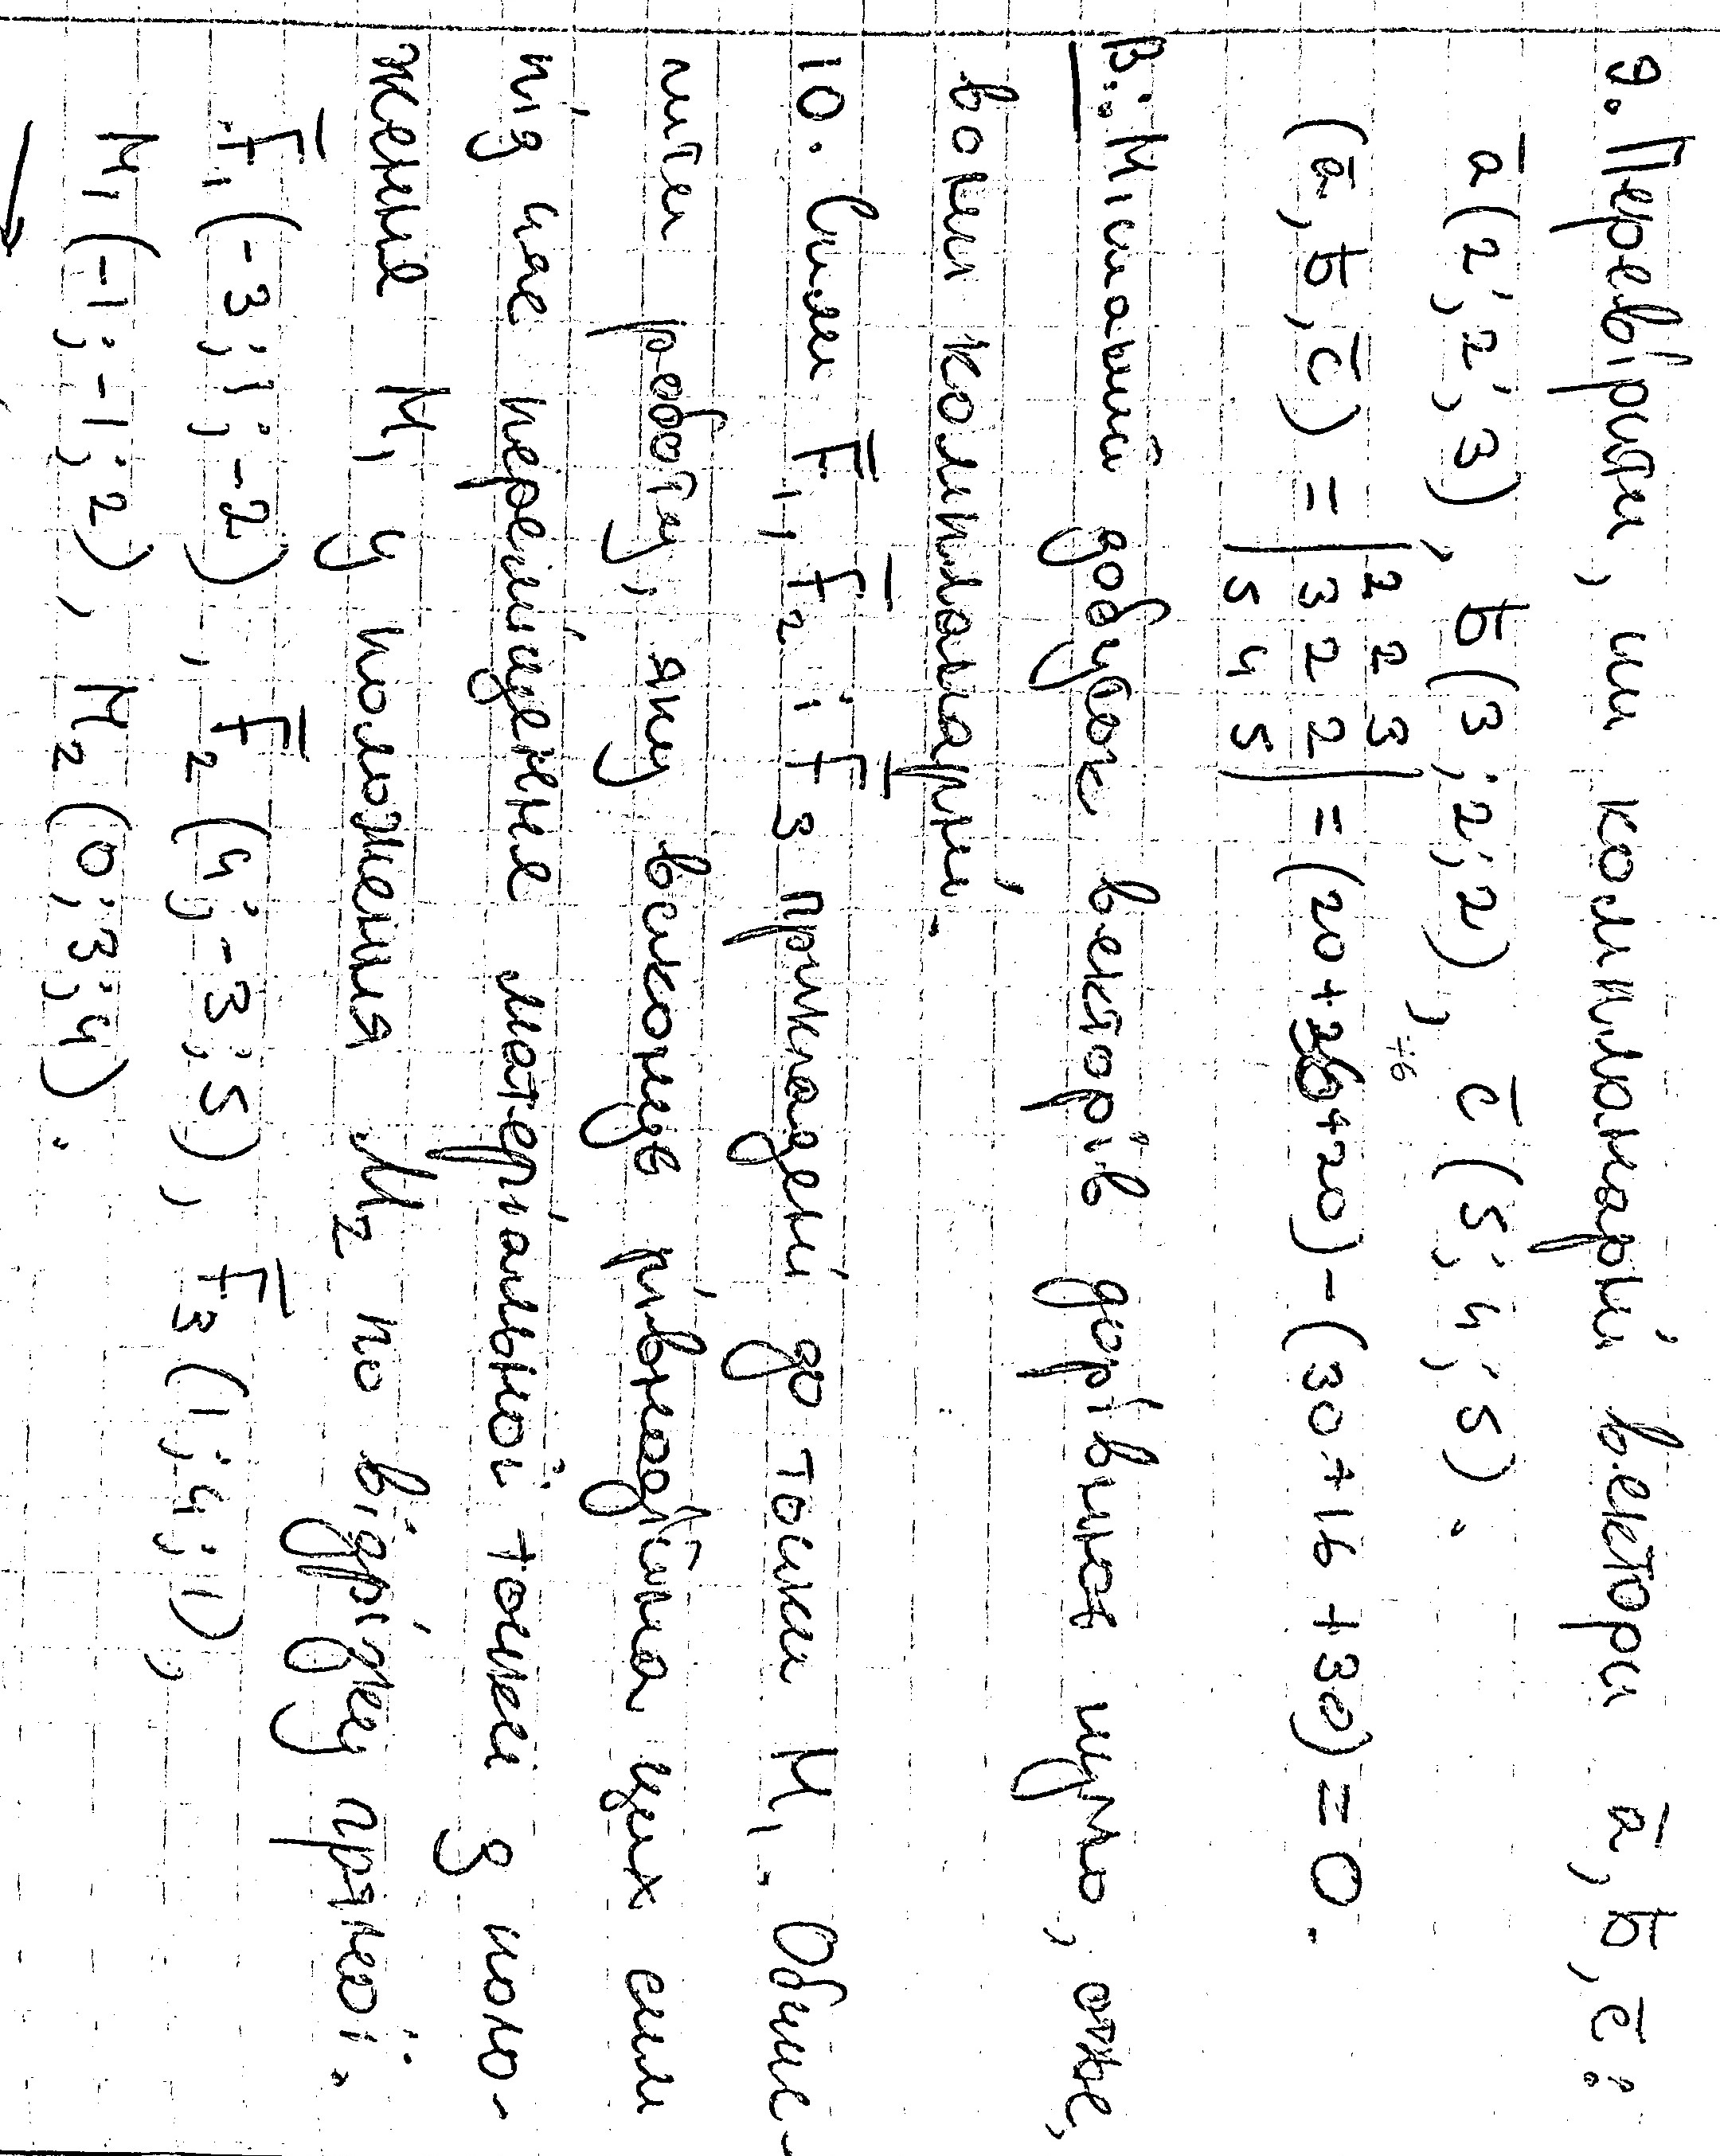 9. Перевірити, чи компланарні вектори ā, b̄, c̄:
ā(2; 2; 3), b̄(3; 2; 2), c̄(5; 4; 5).
(ā, b̄, c̄) = |2 2 3
3 2 2
5 4 5| = (20+36+20) - (30+16+30) = 0.
В.: Мішаний добуток векторів дорівнює нулю, отже,
вони компланарні.
10. Сили F̄₁, F̄₂ і F̄₃ прикладені до точки M₁. Обчис-
лити роботу, яку виконує рівнодійна цих сил
під час переміщення матеріальної точки з поло-
ження M₁ у положення M₂ по відрізку прямої.
F̄₁(-3; 1; -2), F̄₂(4; -3; 5), F̄₃(1; 4; 1),
M₁(-1; -1; 2), M₂(0; 3; 4).
→